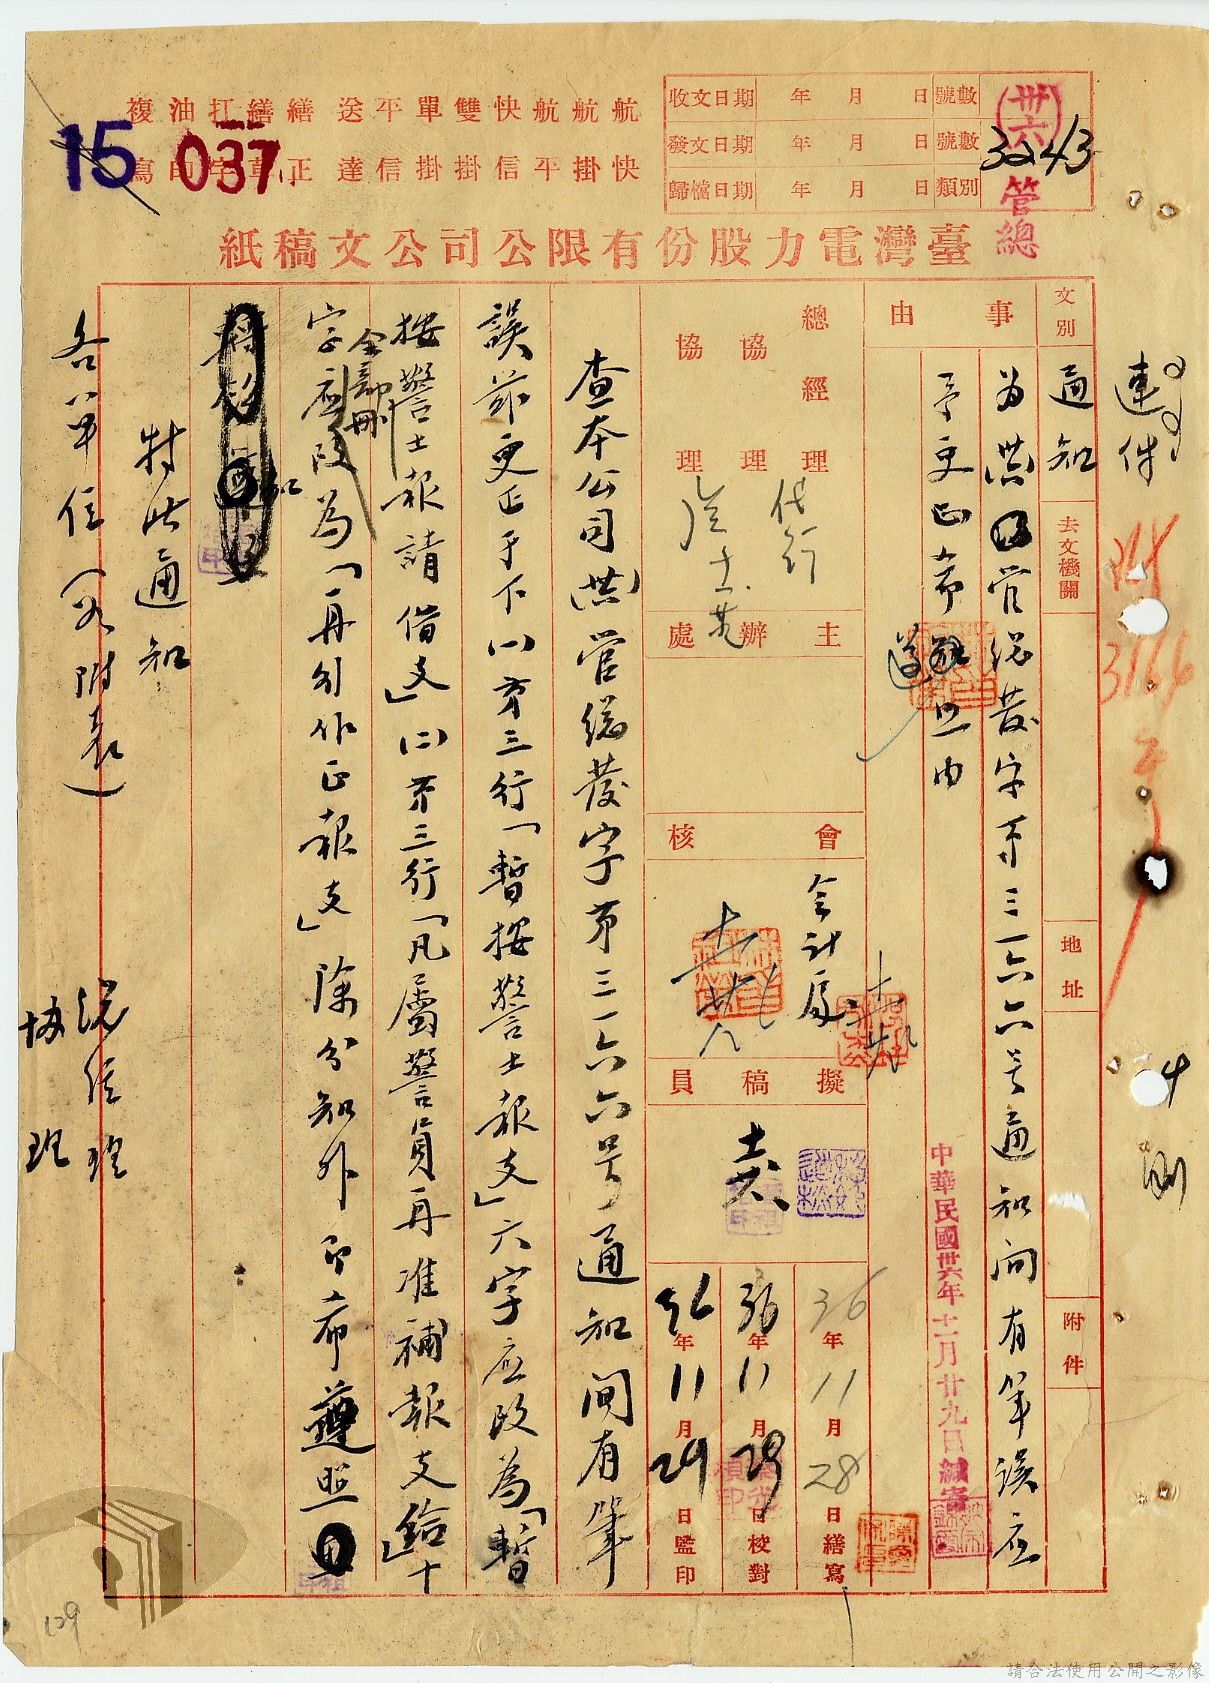 收文日期 年 月 日 號數
發文日期 年 月 日 號數
歸檔日期 年 月 日 類別
(卅六)管總
3243
航快 航掛 航平 快信 雙掛 單掛 平信 送達 繕正 繕草 扛字 油印 複寫
15
037
臺灣電力股份有限公司公文稿紙
連件
附
3166
文別
通知
去文機關
地址
附件
事由
為卅六管總發字第三一六六号通知间有筆誤应
予更正希遵照由
中華民國卅六年十一月廿九日繕寄
總經理
代行
協理
協理
主辦處
會核
会计處
擬稿員
36年11月28日繕寫
36年11月29日校對
36年11月29日監印
查本公司(卅六)管總發字第三一六六号通知间有筆
誤茲更正于下(一)第三行「暫按警士報支」六字应改為「暫
按警士報請借支」(二)第三行「凡屬警員再准補報支給」十
字应改為「再分作正報支」除分知外即希遵照
全部刪
特此通知
各單位(另附表)
總經理
協理
129
請合法使用公開之影像